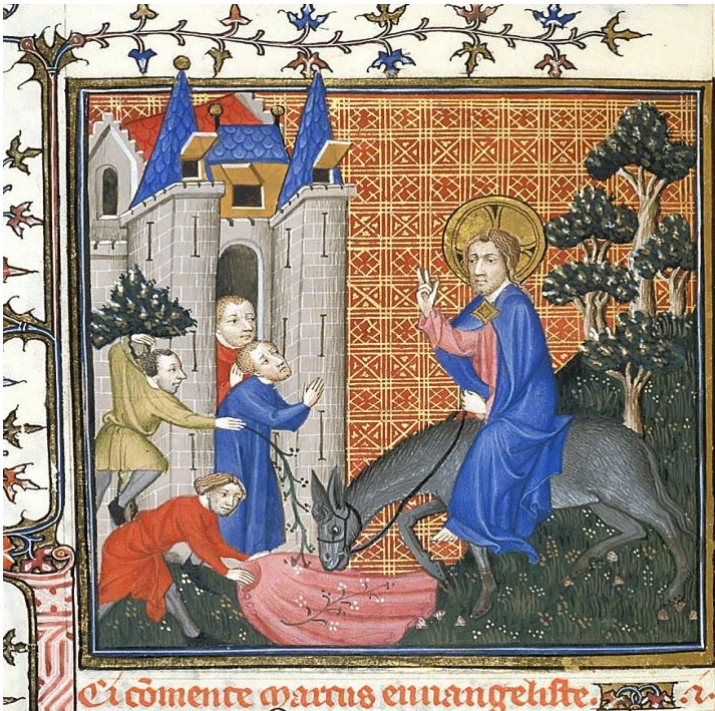 Ci cõmence marcus euuangeliste. .i.